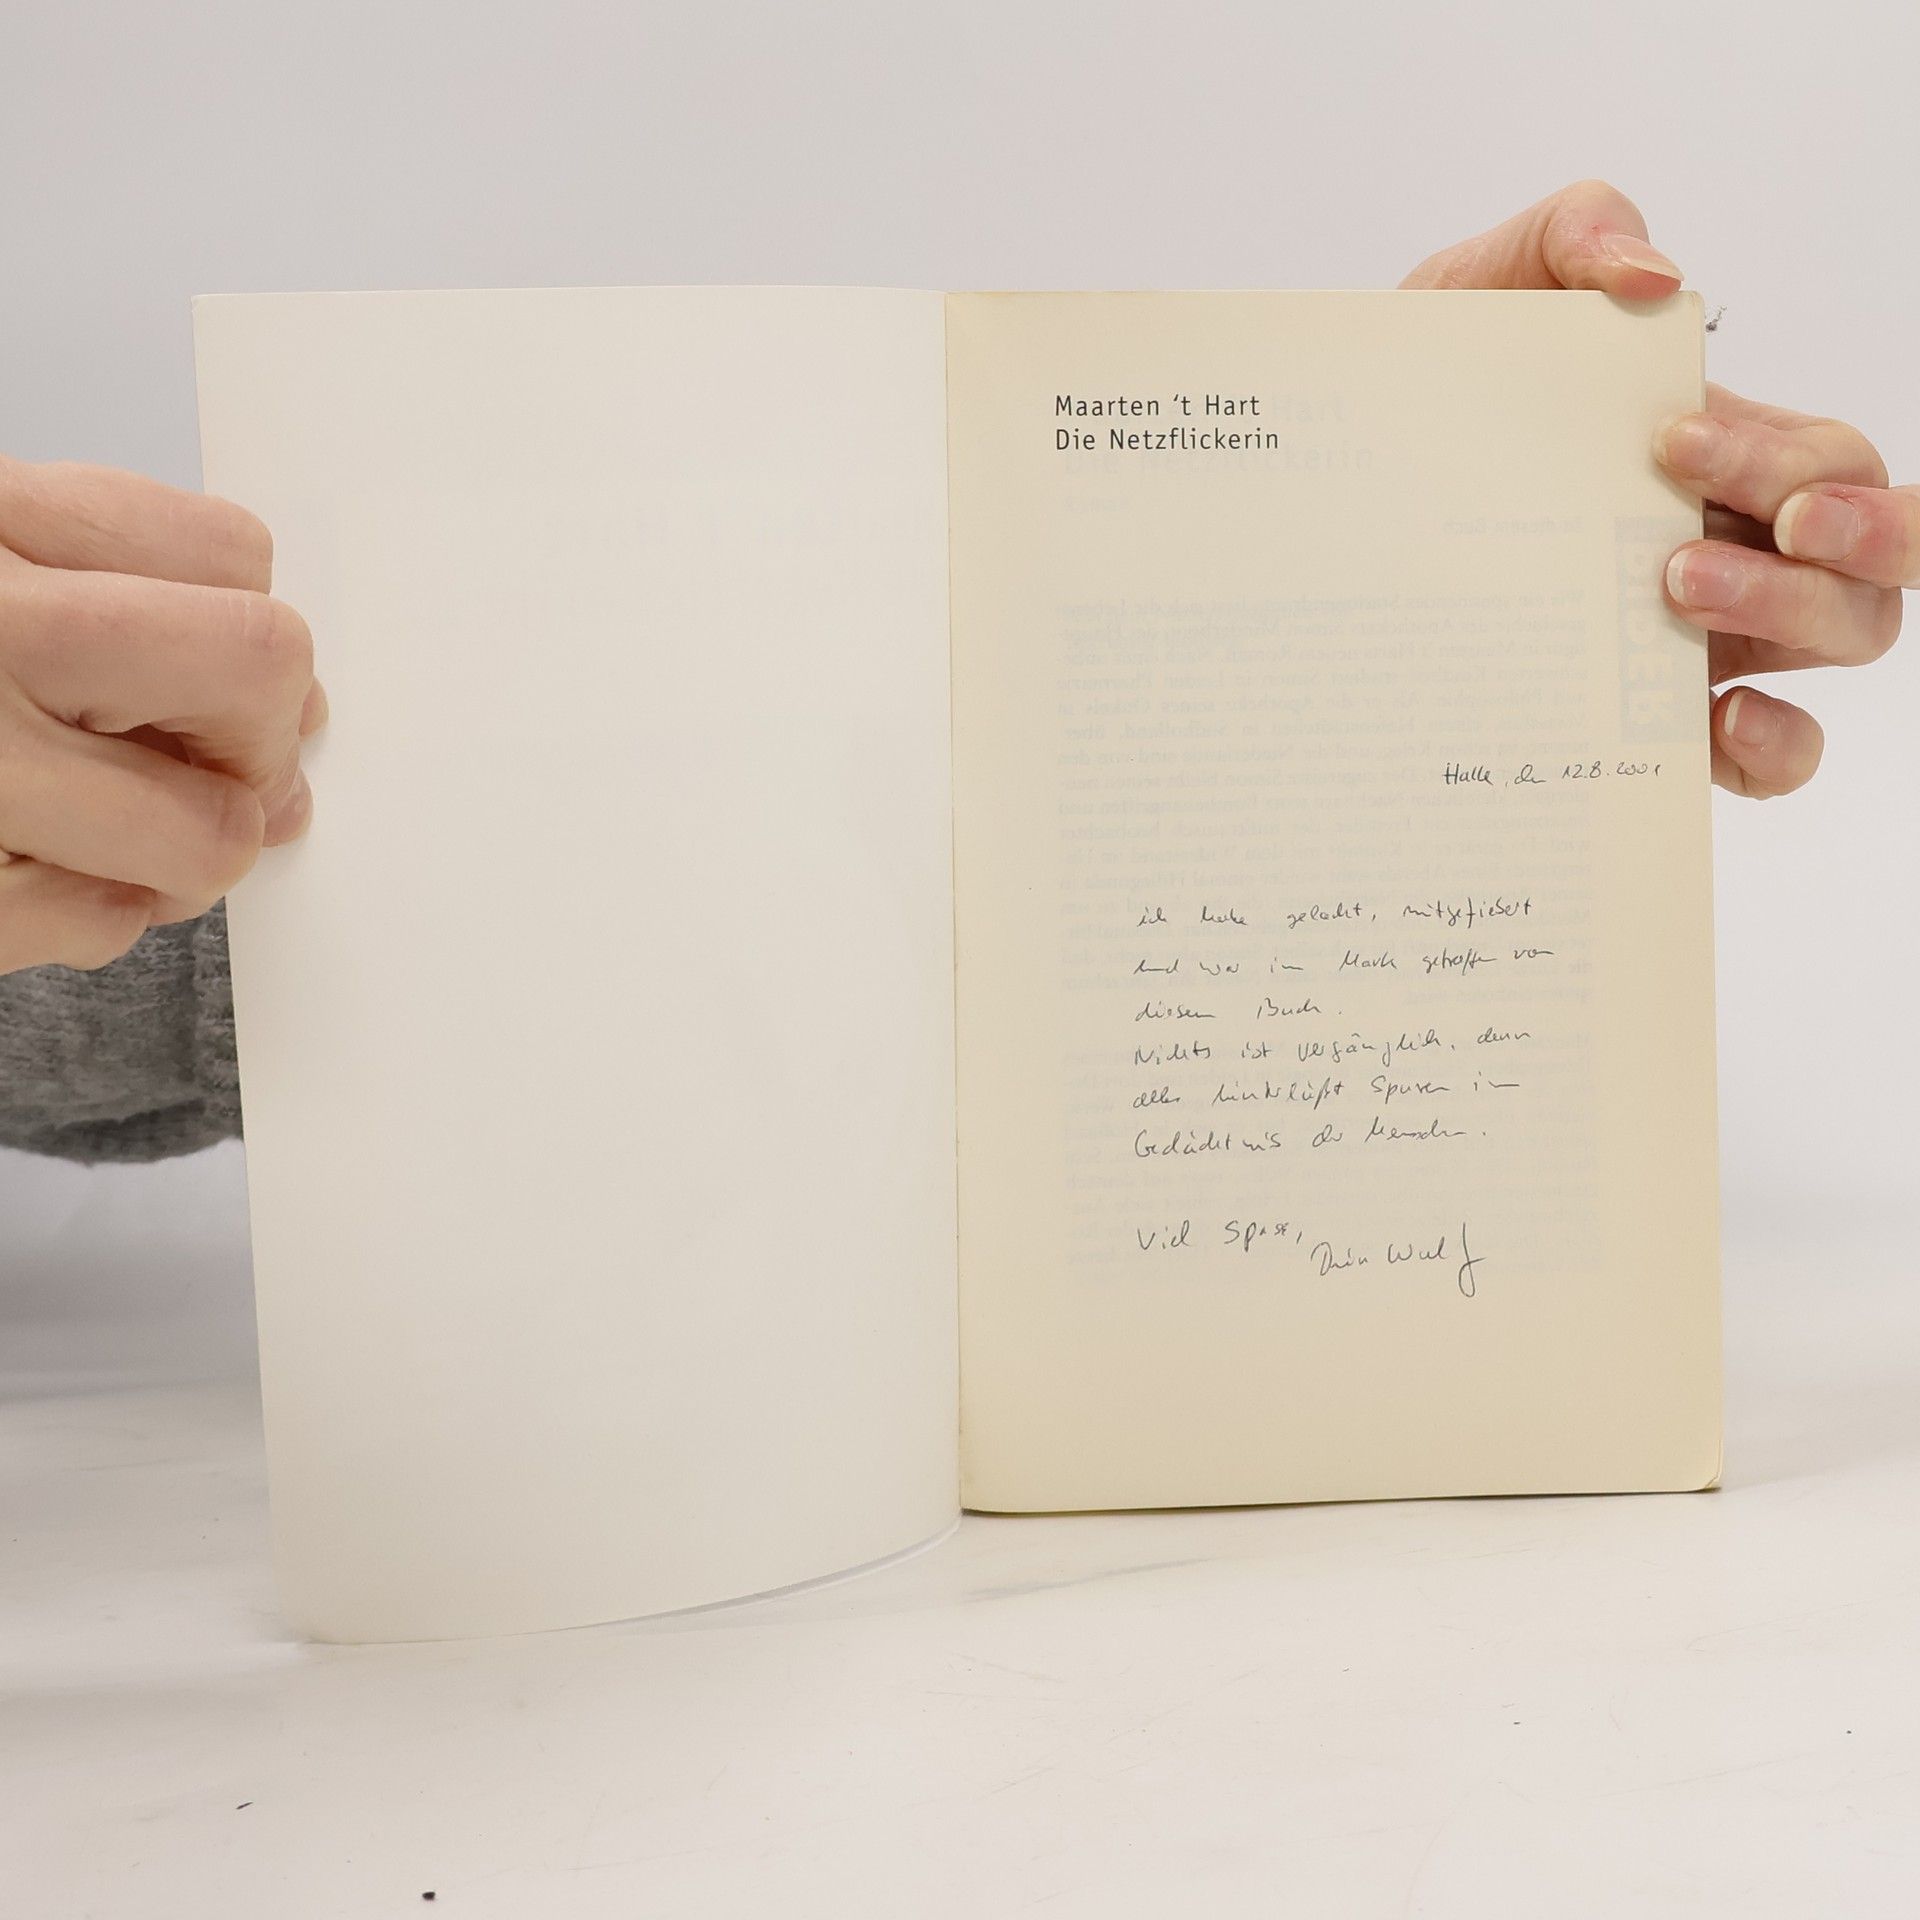 Maarten ‘t Hart
Die Netzflickerin
Halle, den 12.8.2001
ich habe gelacht, mitgefiebert
und war im Mark getroffen von
diesem Buch.
Nichts ist vergänglich, denn
alles hinterläßt Spuren im
Gedächtnis der Menschen.
Viel Spass,
Dein Wulf